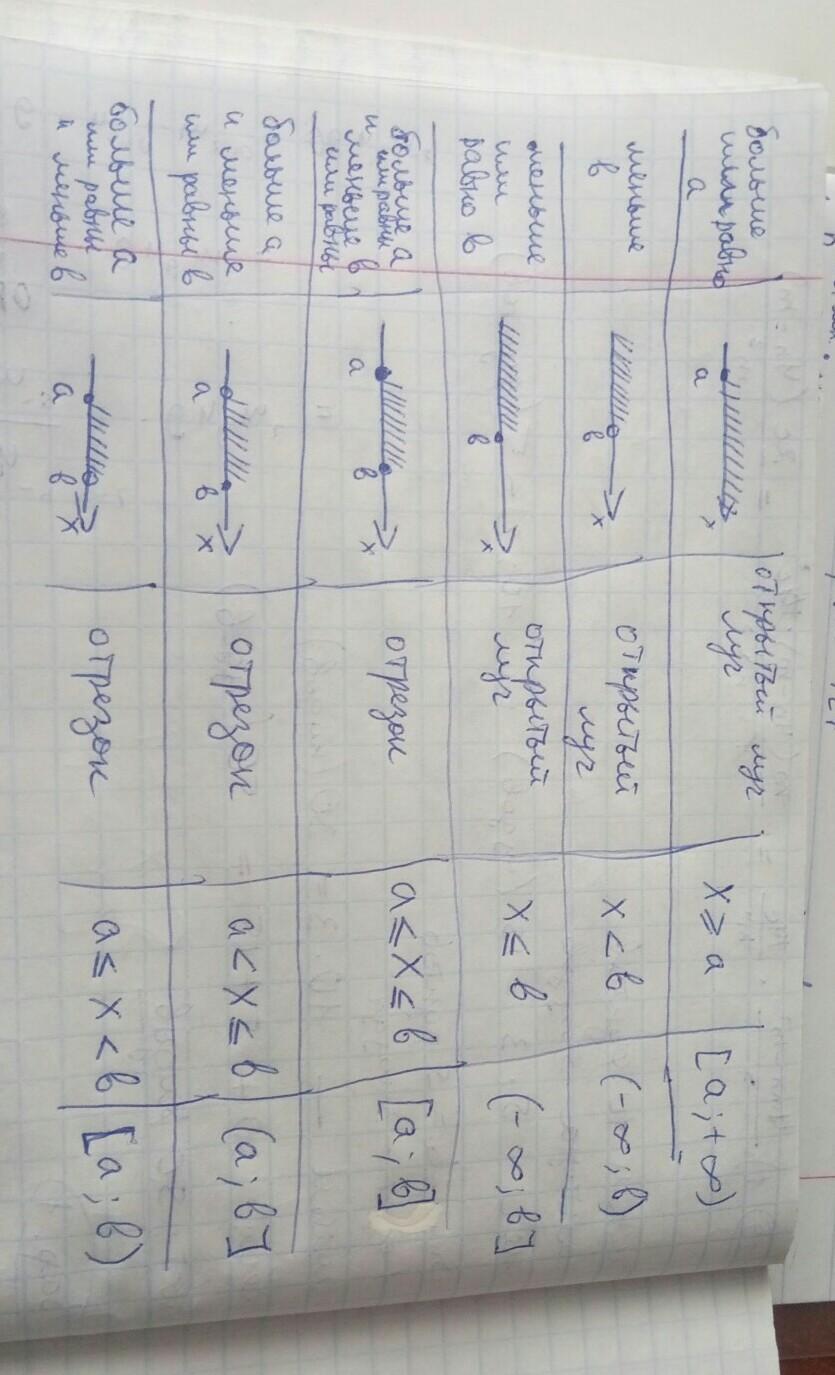 больше
или равно
а
а
x
открытый луч
x ⩾ a
[a; +∞)
меньше
в
в
x
открытый
луч
x < в
(-∞; в)
меньше
или
равно в
в
x
открытый
луч
x ≤ в
(-∞; в]
больше а
или равны
и меньше в
или равны
а
в
x
отрезок
a ≤ x ≤ в
[a; в]
больше а
и меньше
или равны в
а
в
x
отрезок
a < x ≤ в
(a; в]
больше а
или равны
и меньше в
а
в
x
отрезок
a ≤ x < в
[a; в)